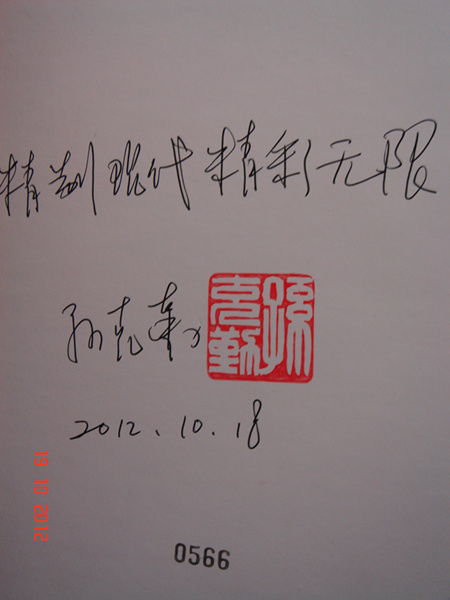 精制现代 精彩无限
孙克勤
孫克勤
2012.10.18
19 10 2012
0566